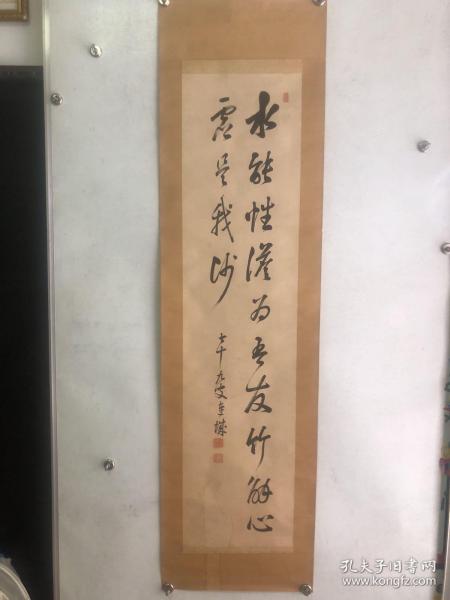 水能性澹为吾友竹解心
虚是我师
七十九叟
孔夫子旧书网
www.kongfz.com